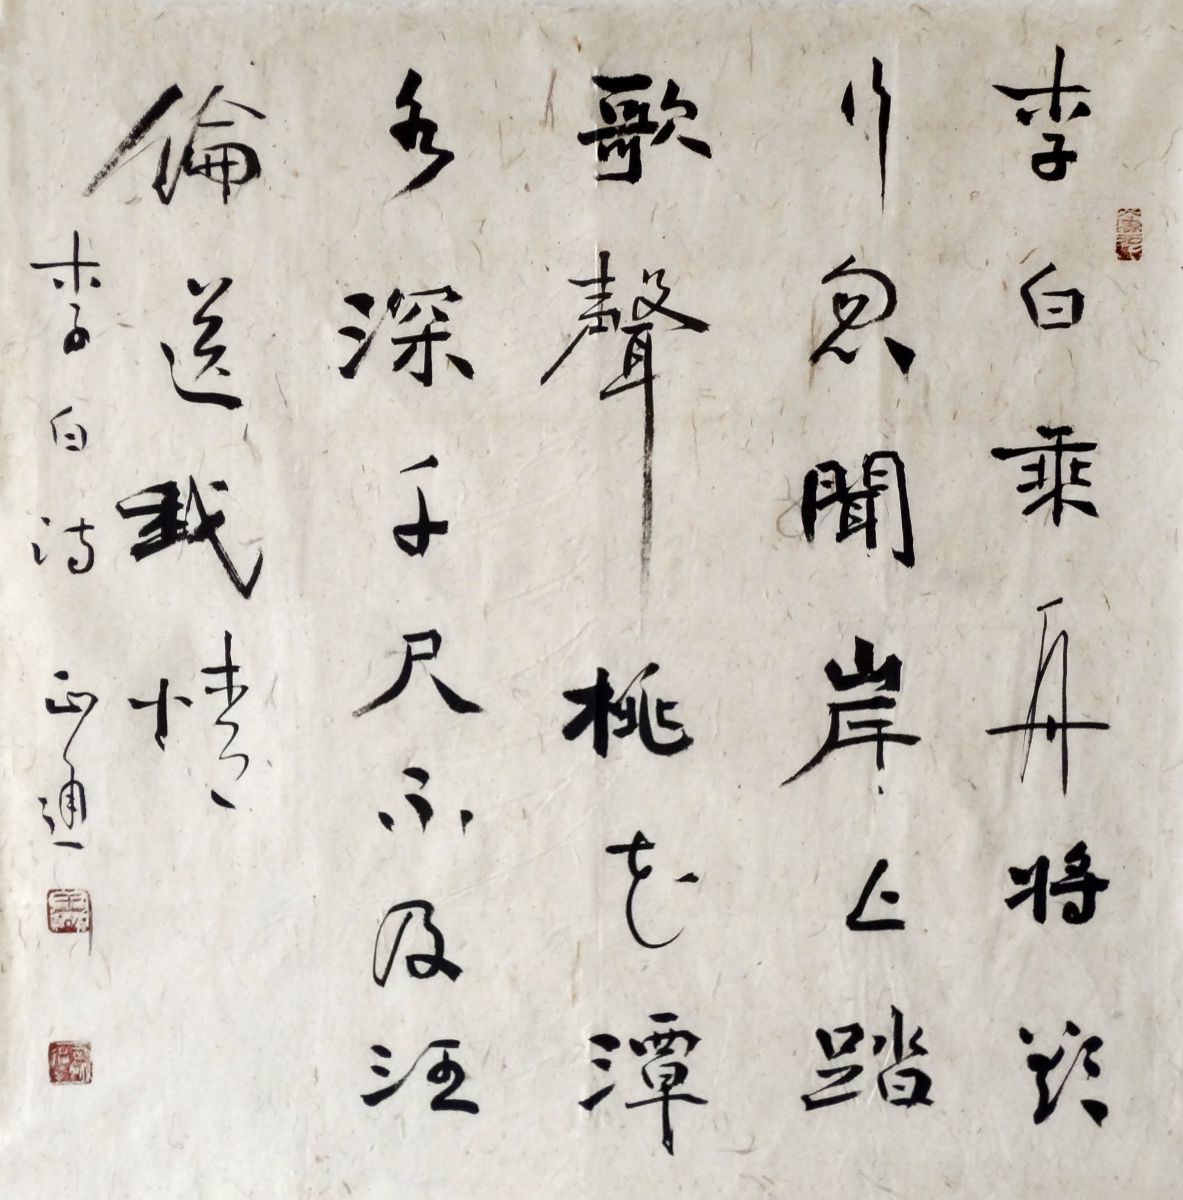 李白乘舟將欲
行忽聞岸上踏
歌聲桃花潭
水深千尺不及汪
倫送我情
李白詩 正通